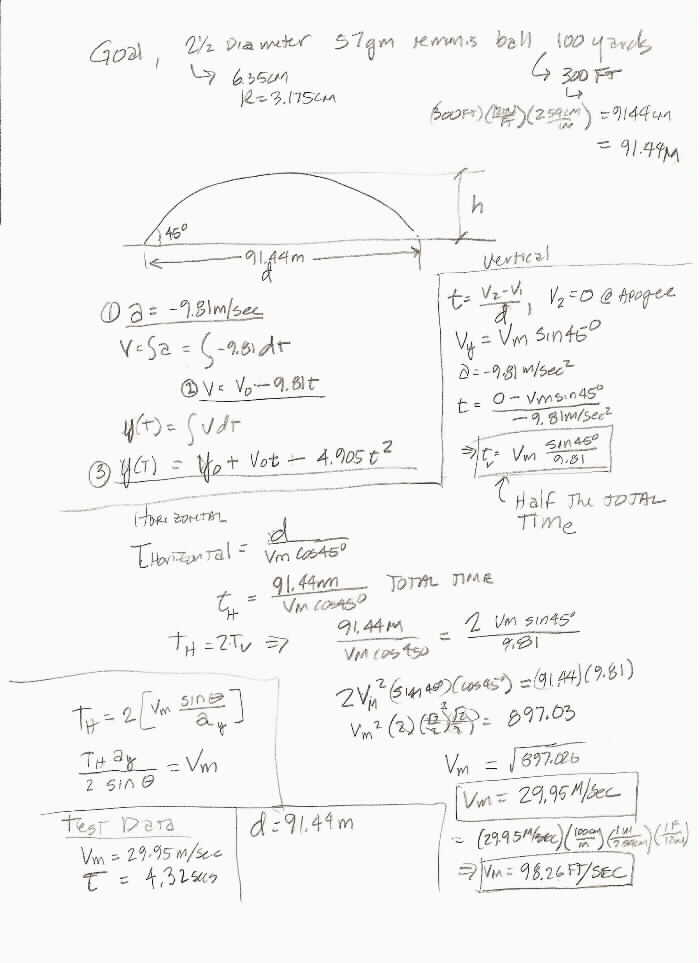 Goal, 2½ Diameter 57gm tennis ball 100 yards
↳ 6.35cm
R = 3.175cm
↳ 300 FT
(300FT)(12in/FT)(2.54cm/in) = 9144cm
= 91.44M
45°
h
91.44m
d
① a = -9.81m/sec
V = ∫a = ∫-9.81dt
② V = V₀ - 9.81t
y(t) = ∫Vdt
③ y(T) = y₀ + V₀t - 4.905t²
Vertical
t = (V₂-V₁)/d, V₂=0 @ Apogee
Vy = Vm Sin45°
a = -9.81 m/sec²
t = (0 - Vmsin45°)/(-9.81m/sec²)
⇒ tv = Vm sin45°/9.81
Half The TOTAL
Time
Horizontal
THorizontal = d/(Vm Cos45°)
tH = 91.44m/(Vm cos45°) TOTAL TIME
tH = 2·Tv ⇒ 91.44m/(Vm cos 450) = 2 Vm sin45°/9.81
2Vm²(sin45°)(cos45°) = (91.44)(9.81)
Vm²(2)(√2/2)(√2/2) = 897.03
Vm = √897.026
Vm = 29.95 M/sec
= (29.95M/sec)(100cm/m)(1in/2.54cm)(1F/12in)
⇒ Vm = 98.26FT/SEC
TH = 2[Vm sinθ/ay]
TH ay/(2 sin θ) = Vm
Test Data
Vm = 29.95m/sec
T = 4.32secs
d = 91.44m